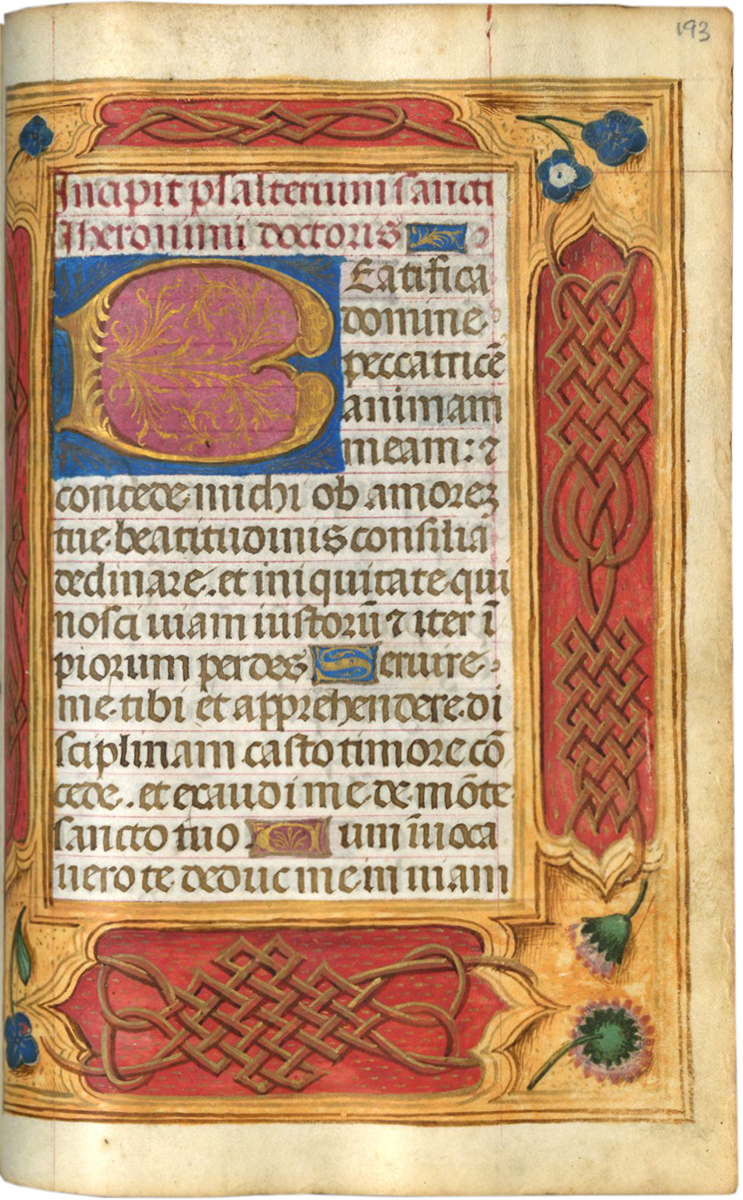 193
Incipit psalterium sancti
iheronimi doctoris
BEatifica
domine
peccatricē
animam
meam: ⁊
concede michi ob amorez
tue beatitudinis consilia
declinare. et iniquitate qui
nosci uiam iustorū ⁊ iter ī
piorum perdes Seruire
me tibi et apprehendere di
sciplinam casto timore cō
cede. et exaudi me de mōte
sancto tuo. Cum īuoca
uero te deduc me in uiam